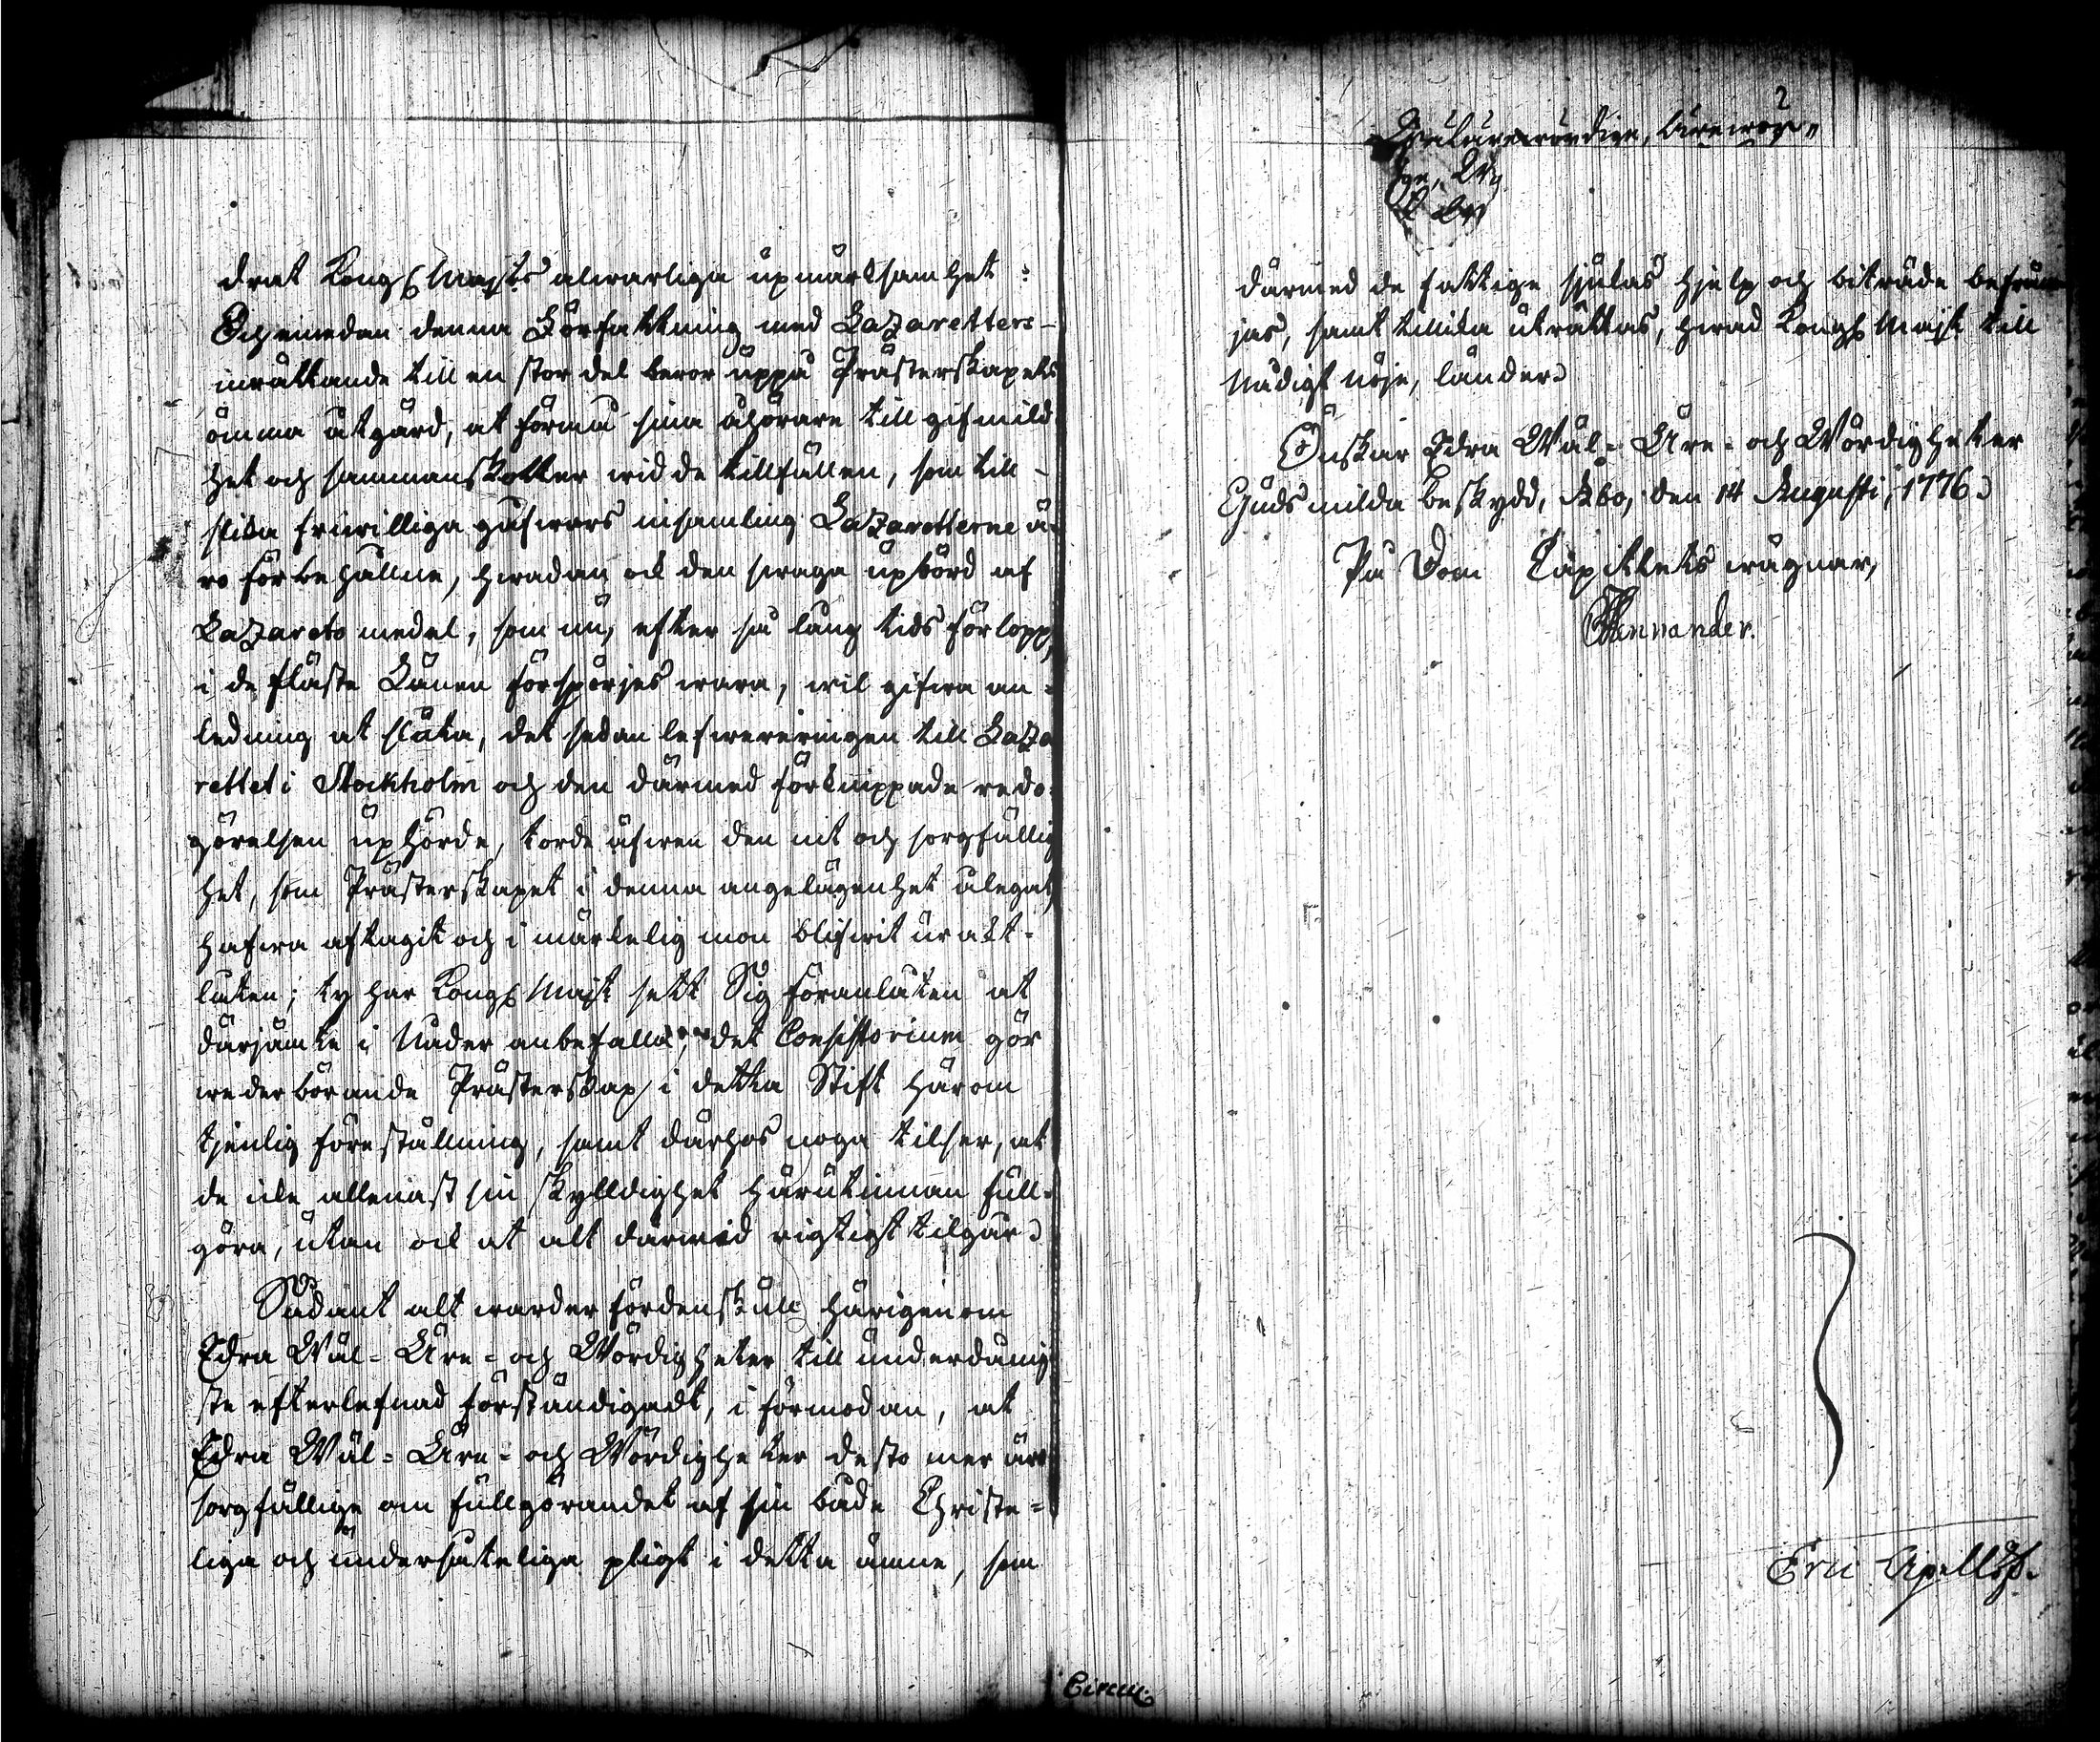 drat Kongl Majts alwarliga upmärksamhet:
Och emedan denna Författning med Lazaretters-
inrättande till en stor del beror uppå Prästerskapets
ömma åtgärd, at förmå sina åhörare till gifmild
het och sammanskotter wid de tillfällen, som till-
slika friwilliga gåfwors insamling Lazaretterne ä-
ro förbehållne, hwadan ock den swaga upbörd af
Lazarets medel, som nu, efter så lång tids förlopp,
i de fläste Länen förspörjes wara, wil gifwa an-
ledning at sluta, det sedan lefwereringen till Laza
rettet i Stockholm och den därmed förknippade redo-
görelsen uphörde, torde äfwen den nit och sorgfällig
het, som Prästerskapet i denna angelägenhet ålegat,
hafwa aftagit och i märkelig mon blifwit urakt-
låten; ty har Kongl Majt sett Sig föranlåten at
därjämte i Nåder anbefalla, det Consistorium gör
wederbörande Prästerskap i detta Stift härom
tjenlig föreställning, samt därhos noga tilser, at
de icke allenast sin skylldighet härutinnan full-
göra, utan ock at alt därwid rigtigt tilgår.
Sådant alt warder fördenskull härigenom
Edra Wäl-Äre-och Wördigheter till underdånig
ste efterlefnad förständigadt, i förmodan, at
Edra Wäl-Äre-och Wördigheter desto mer äro
sorgfällige om fullgörandet af sin både Christe-
liga och undersåteliga pligt i detta ämne, som
2
därmed de fattige sjukas hjelp och biträde befräm
jas, samt tillika uträttas, hwad Kongl Majt till
Nådigt nöje, länder.
Önskar Edra Wäl-Äre-och Wördigheter
Guds milda beskydd, Åbo, den 14 Augusti, 1776.
På Dom Capittlets wägnar,
Mennander.
Eric
Circul.